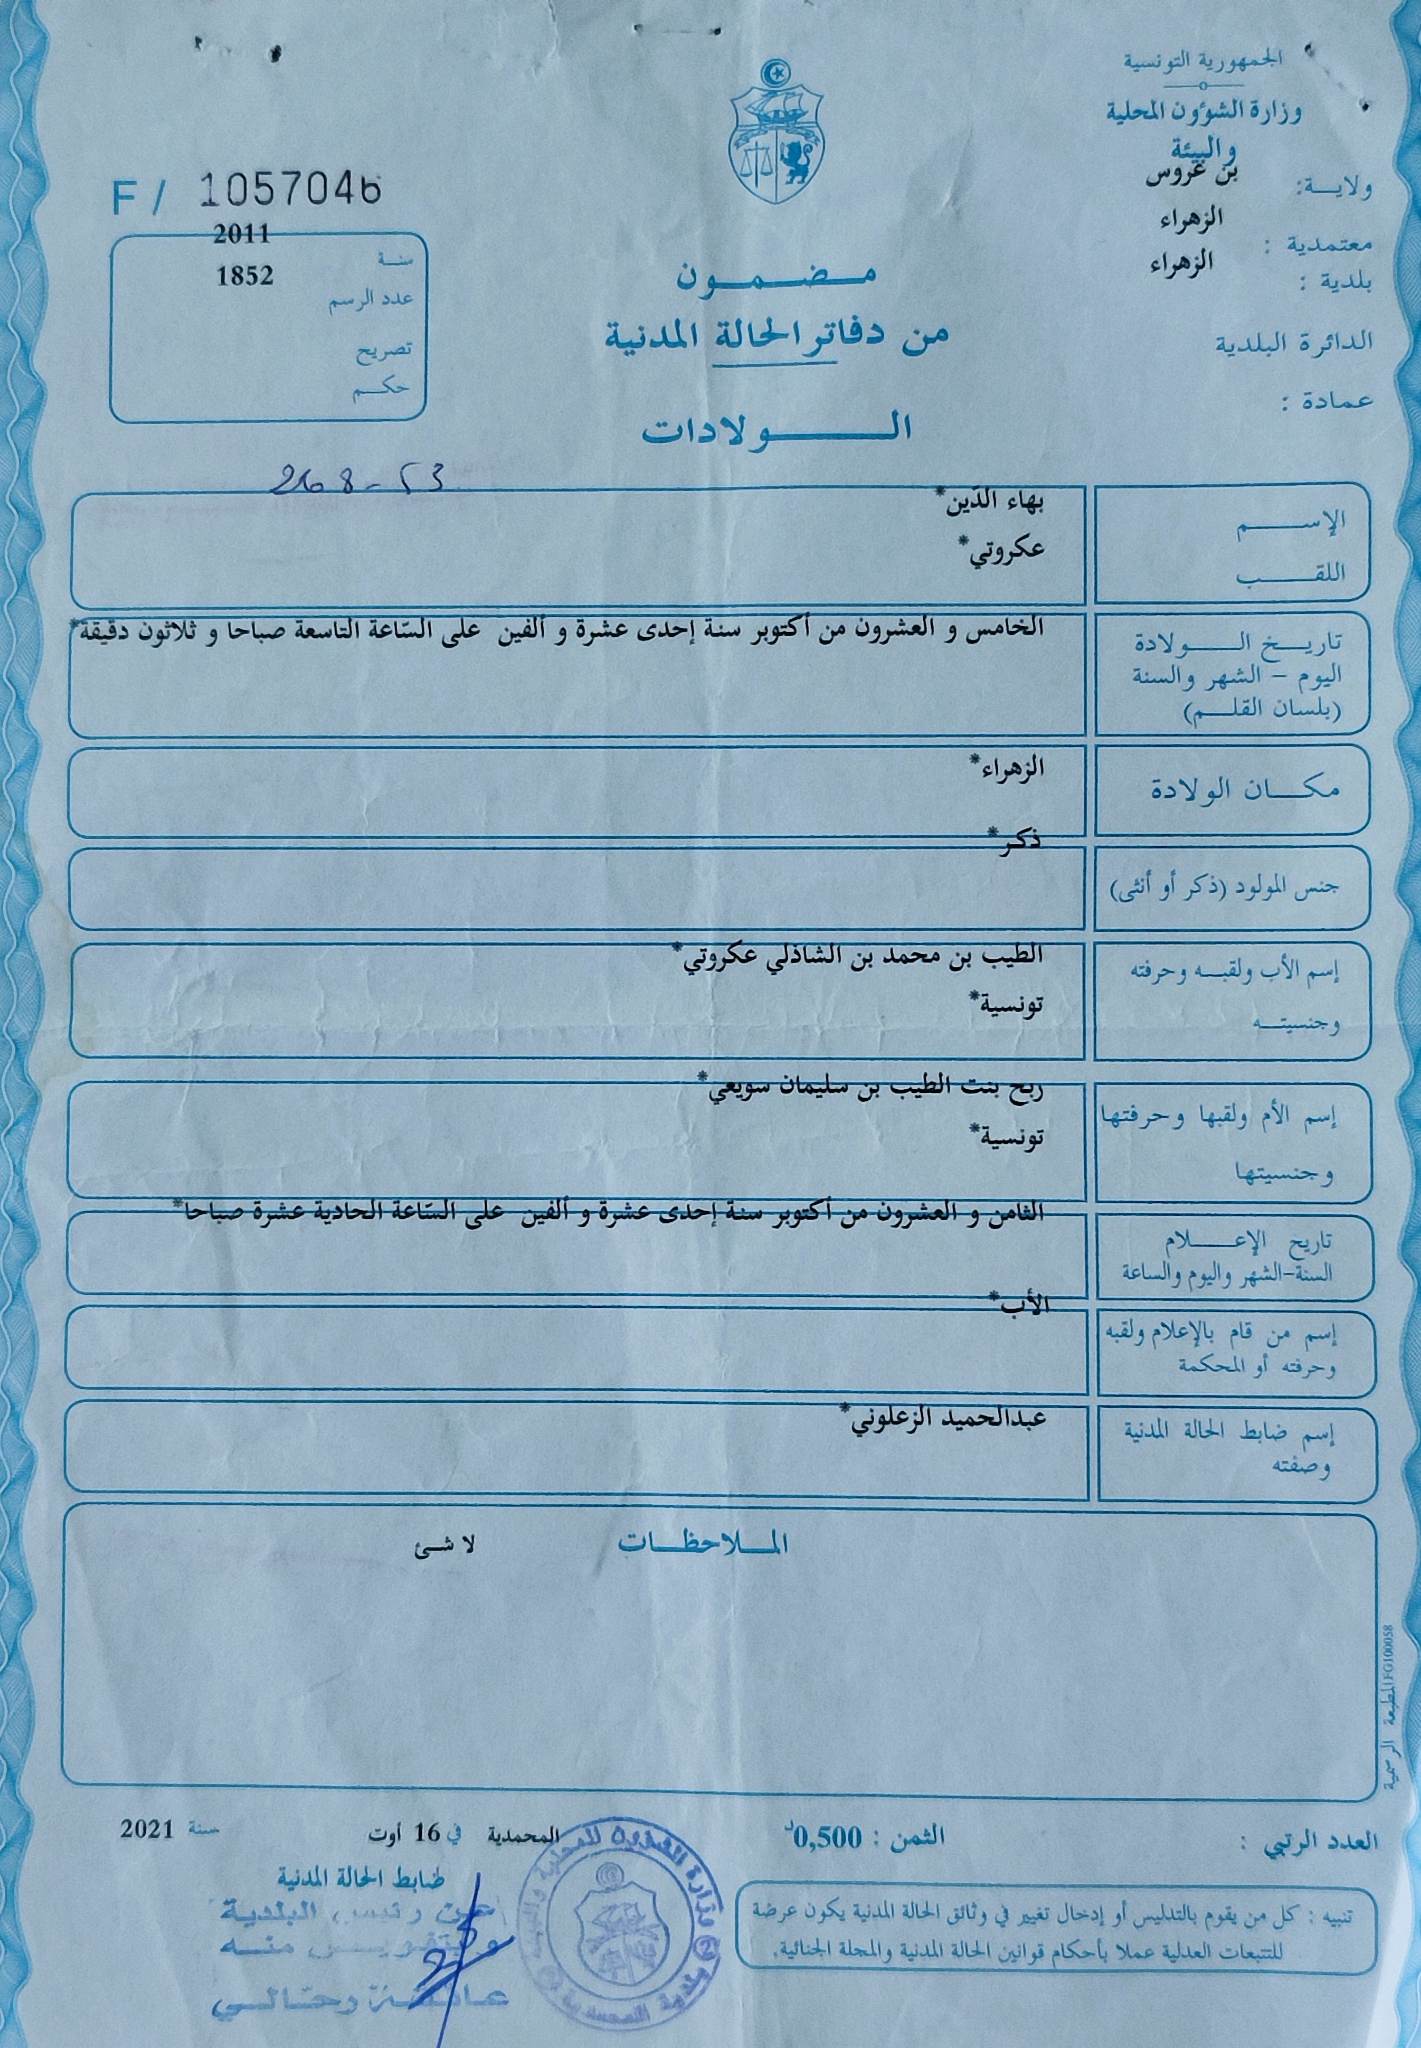 الجمهورية التونسية
وزارة الشؤون المحلية
والبيئة
ولايـــة: بن عروس
معتمدية : الزهراء
بلدية : الزهراء
الدائرة البلدية
عمادة :
F / 1057046
سنـة 2011
عدد الرسم 1852
تصريح
حكــم
مــضــمــون
من دفاتر الحالة المدنية
الــــولادات
268-53
الإســــم بهاء الدّين*
اللقــــب عكروتي*
تاريــخ الــــولادة الخامس و العشرون من أكتوبر سنة إحدى عشرة و ألفين على السّاعة التاسعة صباحا و ثلاثون دقيقة*
اليوم – الشهر والسنة
(بلسان القلـــم)
مكــان الولادة الزهراء*
جنس المولود (ذكر أو أنثى) ذكر*
إسم الأب ولقبــه وحرفته الطيب بن محمد بن الشاذلي عكروتي*
وجنسيتــه تونسية*
إسم الأم ولقبها وحرفتها ربح بنت الطيب بن سليمان سويعي*
وجنسيتها تونسية*
تاريح الإعـــــلام الثامن و العشرون من أكتوبر سنة إحدى عشرة و ألفين على السّاعة الحادية عشرة صباحا*
السنة-الشهر واليوم والساعة
إسم من قام بالإعلام ولقبه الأب*
وحرفته أو المحكمة
إسم ضابط الحالة المدنية عبدالحميد الزعلوني*
وصفته
المــلاحظــات لا شئ
المطبعة الرسمية FG100058
العدد الرتبي :
الثمن : 0,500د
المحمدية في 16 أوت سنة 2021
ضابط الحالة المدنية
عن رئيس البلدية
وبتفويض منه
وزارة الشؤون المحلية والبيئة
بلدية المحمدية
تنبيه : كل من يقوم بالتدليس أو إدخال تغيير في وثائق الحالة المدنية يكون عرضة
للتتبعات العدلية عملا بأحكام قوانين الحالة المدنية والمجلة الجنائية.